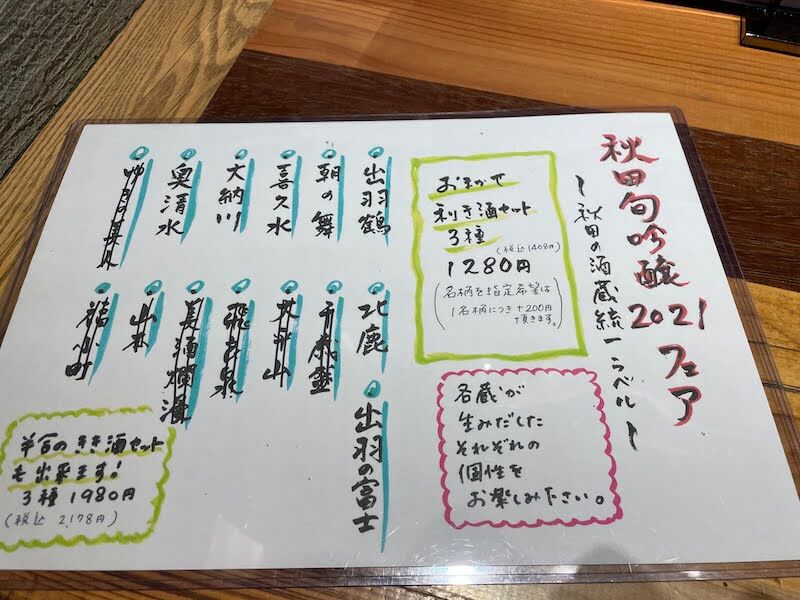 秋田旬吟醸2021フェア
~秋田の酒蔵統一ラベル~
おまかせ
利き酒セット
3種
(税込1408円)
1280円
(名柄を指定希望は
1名柄につき+200円
頂きます。)
各蔵が
生みだした
それぞれの
個性を
お楽しみださい。
出羽鶴
朝の舞
喜久水
大納川
奥清水
北鹿
千歳盛
飛良泉
美酒爛漫
山本
福小町
出羽の富士
半合のきき酒セット
も出来ます!
3種 1980円
(税込 2,178円)